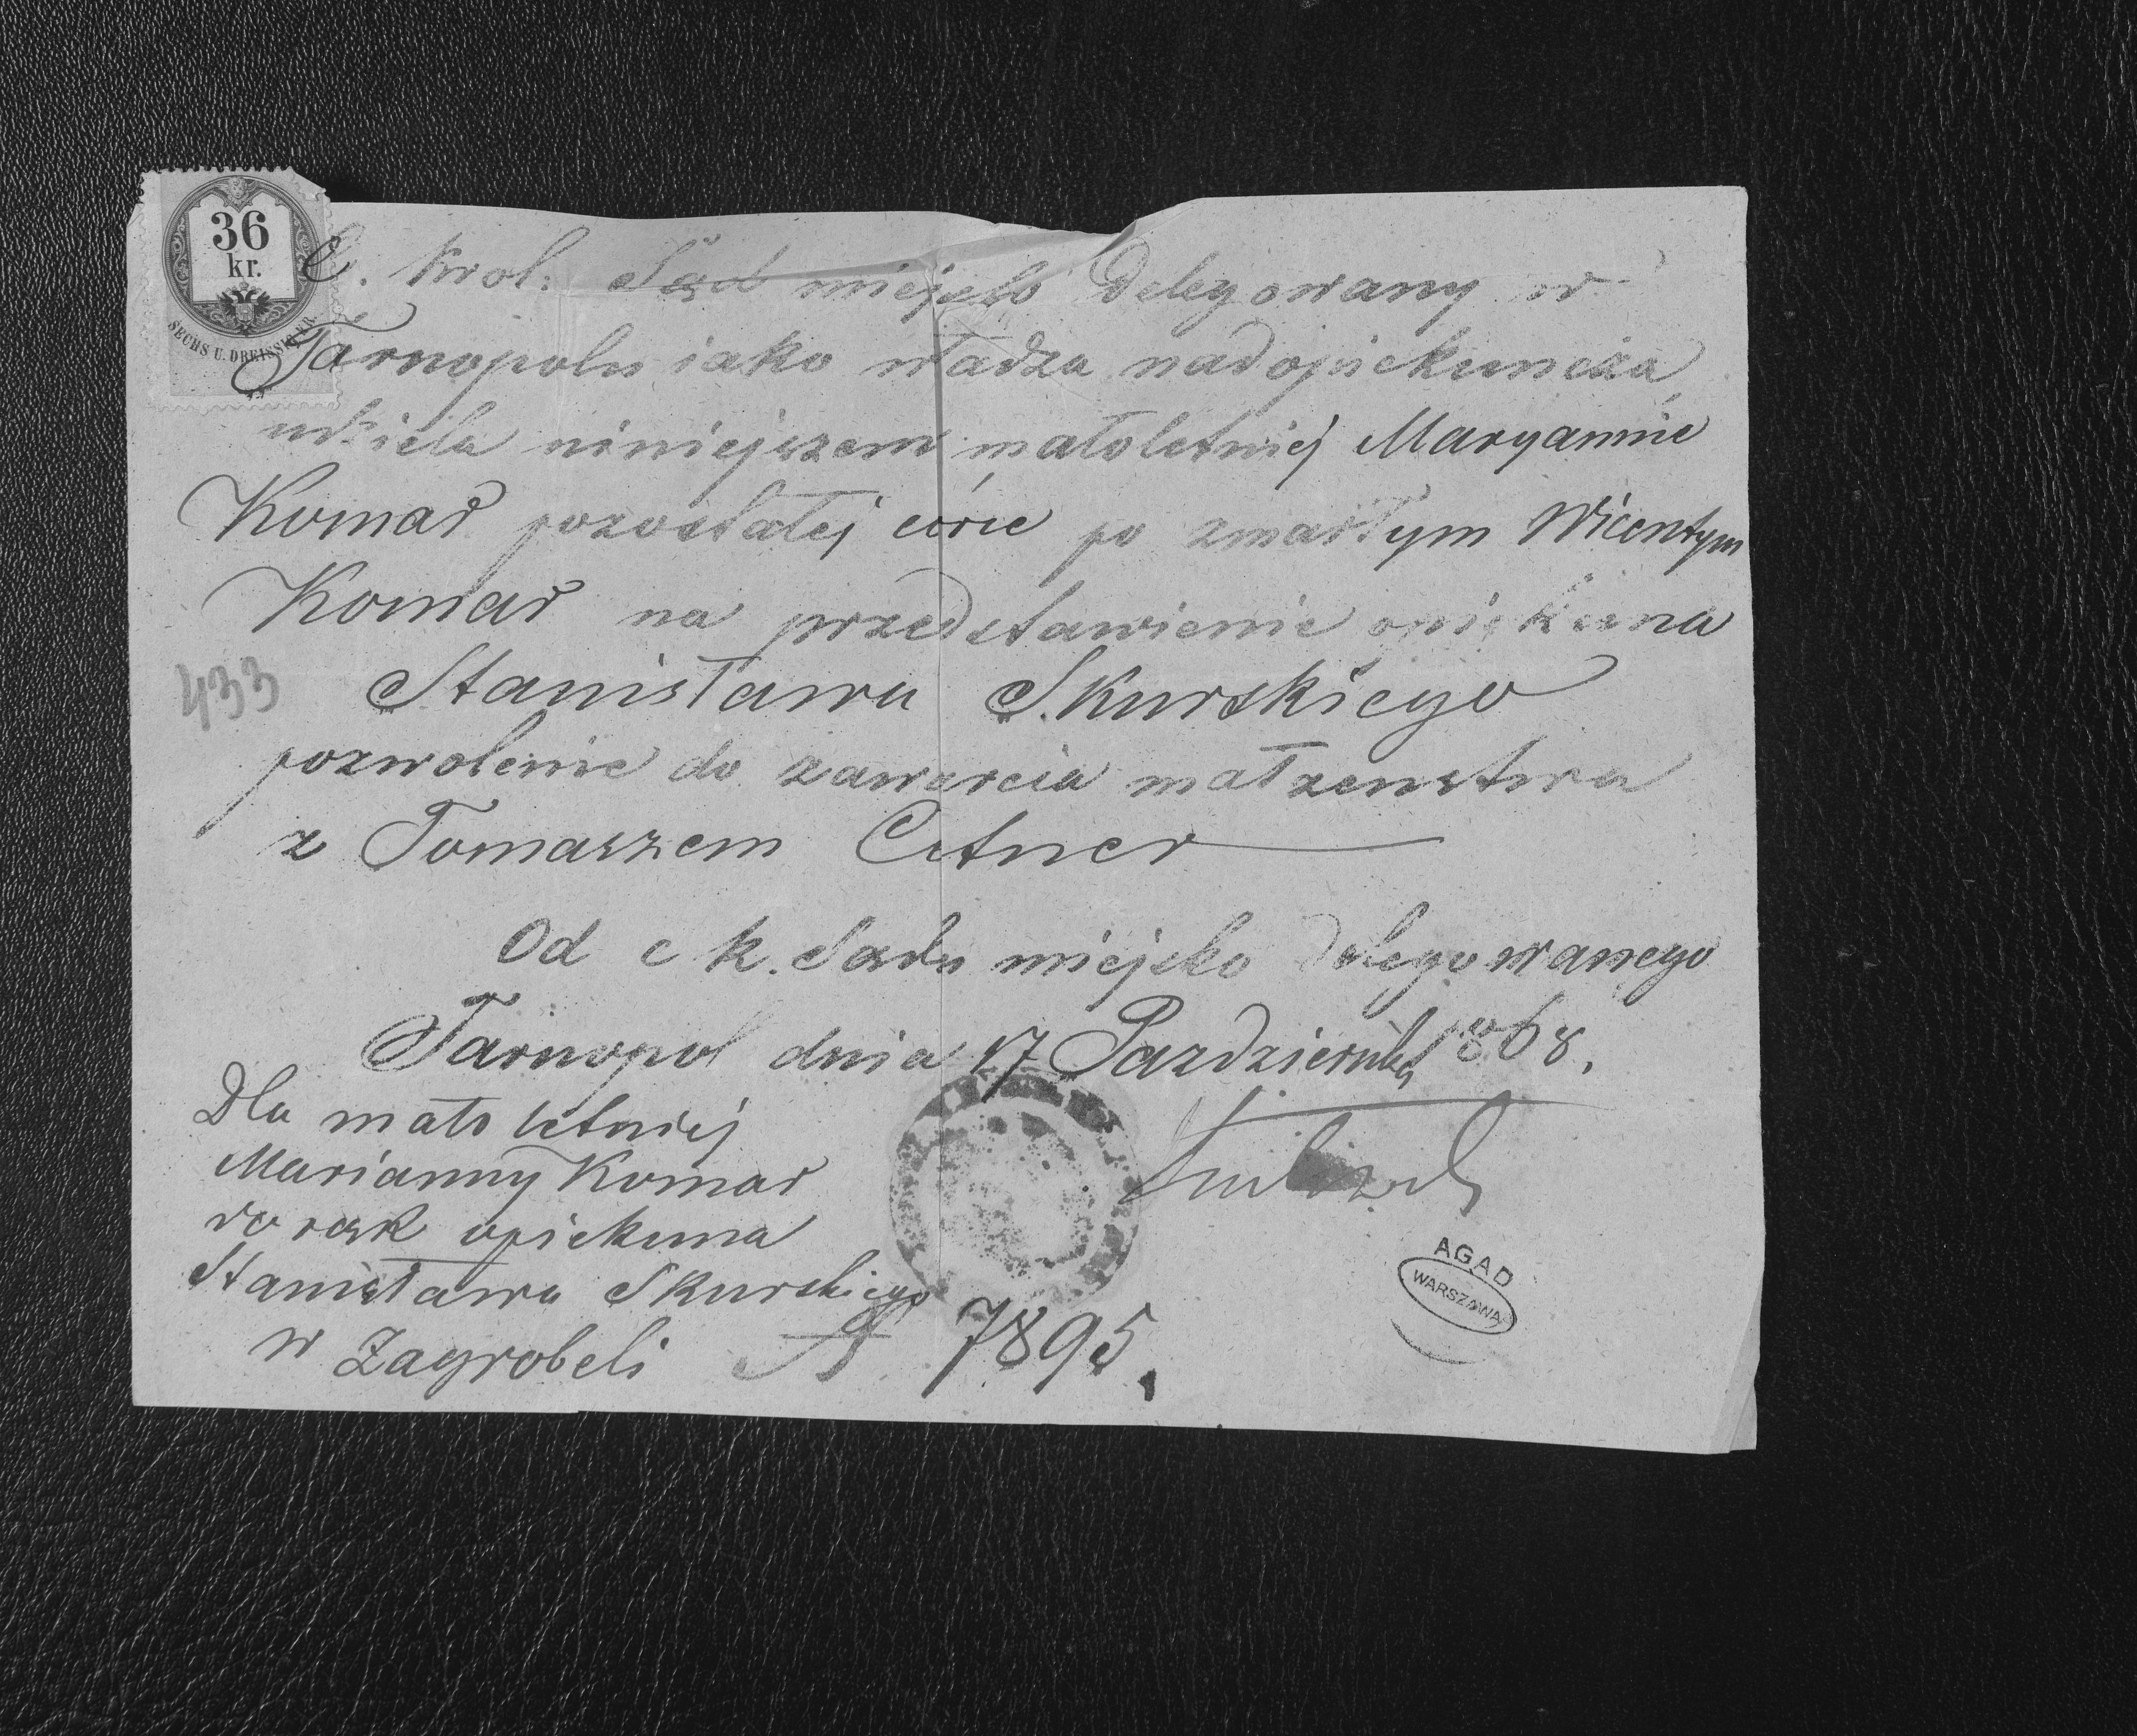 36
kr.
SECHS U. DREISSIG KR.
C. Krol. Sąd miejsko delegowany w
Tarnopolu iako władza nadopiekuncza
udziela niniejszem małoletniej Maryannie
Komar pozostałej córce po zmarłym Wicentym
Komar na przedstawienie opiekuna
433
Stanisława Skurskiego
pozwolenie do zawarcia małzenstwa
z Tomaszem Cetner
Od c k. Sądu miejsko delegowanego
Tarnopol dnia 17 Pazdziernika 1868.
Dla mało letniej
Marianny Komar
do rąk opiekuna
Stanisława Skurskiego
w Zagrobeli
7895.
AGAD
WARSZAWA